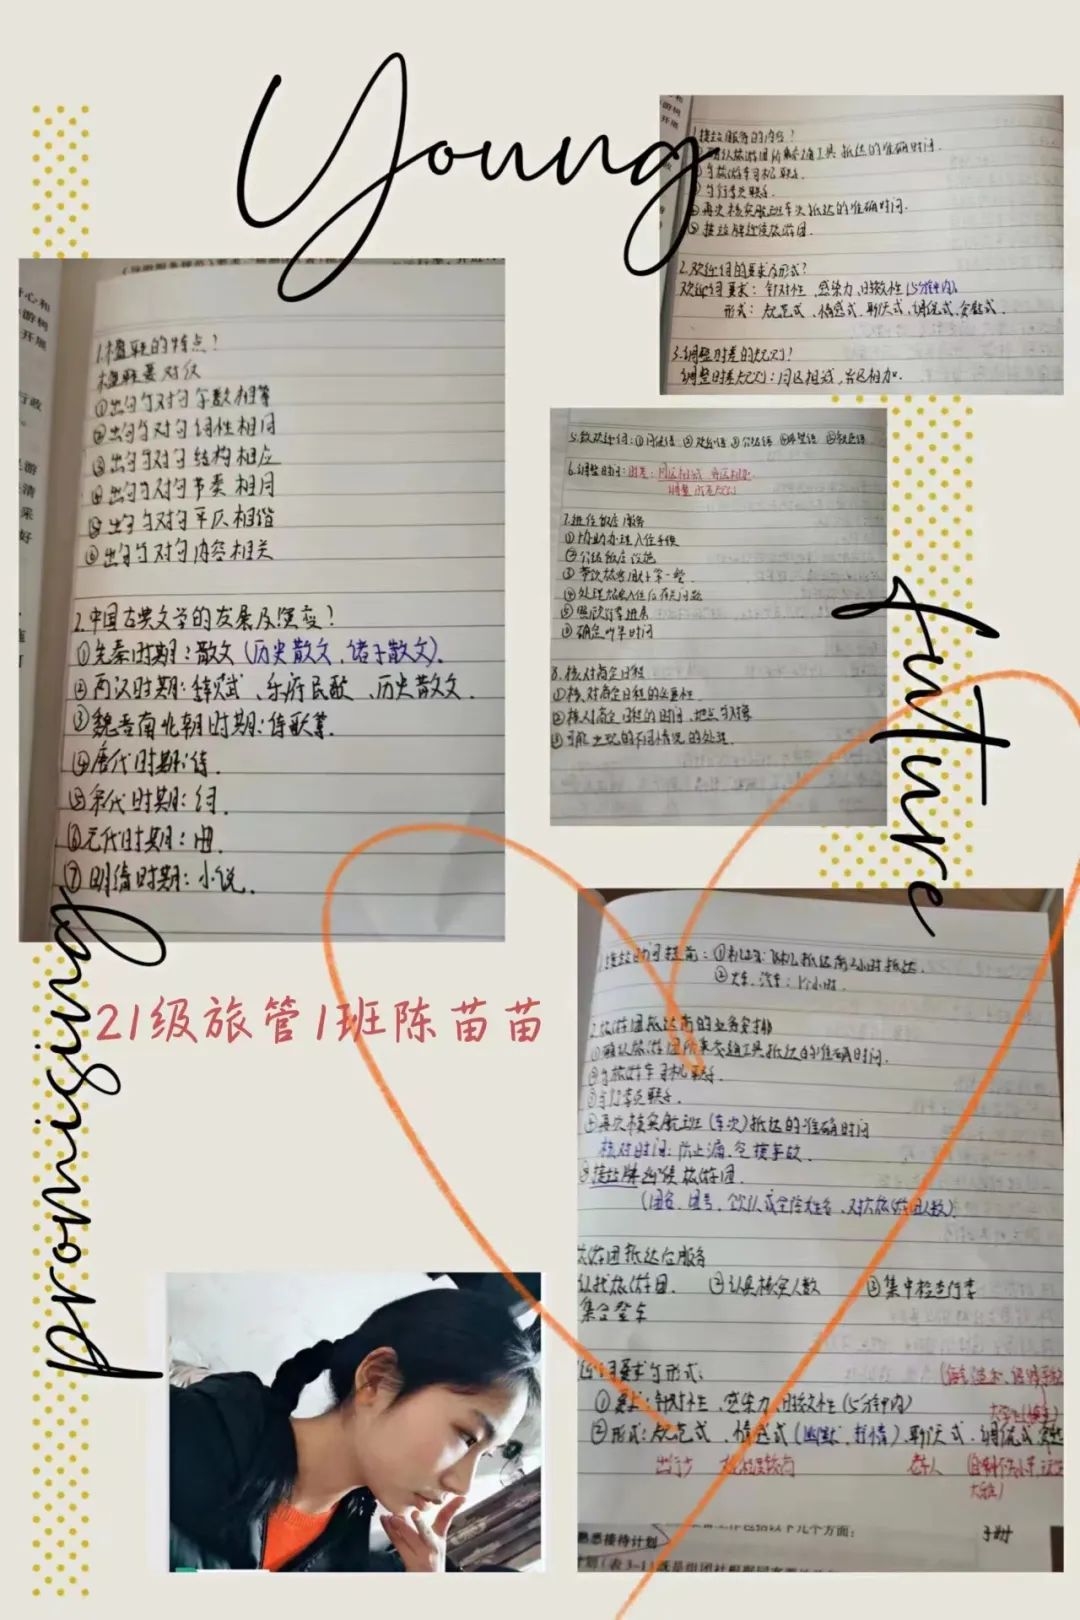 Young
promising
future
21级旅管1班陈苗苗
1.楹联的特点?
楹联要对仗
①出句与对句字数相等
②出句与对句词性相同
③出句与对句结构相应
④出句与对句节奏相同
⑤出句与对句平仄相谐
⑥出句与对句内容相关
2.中国古典文学的发展及演变?
①先秦时期:散文(历史散文,诸子散文).
②两汉时期:辞赋、乐府民歌、历史散文.
③魏晋南北朝时期:诗歌等.
④唐代时期:诗.
⑤宋代时期:词.
⑥元代时期:曲.
⑦明清时期:小说.
1.接站服务的内容?
确认旅游团所乘交通工具抵达的准确时间.
与旅游车司机联系.
与行李员联系.
④再次核实航班车次抵达的准确时间.
⑤接站牌迎候旅游团.
2.欢迎词的要求及形式?
欢迎词要求:针对性、感染力、时效性(5分钟内)
形式:规范式、情感式、聊天式、调侃式、安慰式.
3.调整时差的规则?
调整时差规则:同区相减,异区相加.
6.调整时间:时差:同区相减 异区相加.
调整时差规则
7.进住饭店服务
①协助办理入住手续
②介绍饭店设施
③带领旅客用好第一餐.
④处理旅客入住后有关问题
⑤照顾行李进房
⑥确定叫早时间
8.核对商定日程
①核对商定日程的必要性.
②核对商定日程的时间、地点与对象
③可能出现的不同情况的处理.
②火车、汽车:1个小时.
旅游团抵达前的业务安排
①确认旅游团所乘交通工具抵达的准确时间.
②与旅游车司机联系.
③与行李员联系.
④再次核实航班(车次)抵达的准确时间
核对时间:防止漏、空接事故.
⑤接站牌迎候旅游团.
(团名、团号、领队或全陪姓名、对旅游团人数)
旅游团抵达后服务
认找旅游团. ②认真核实人数 ③集中检查行李
集合登车
迎词要求与形式:
①要求:针对性、感染力、时效性(5分钟内)
②形式:规范式、情感式(幽默、抒情)、聊天式、调侃式
老年人
熟悉接待计划